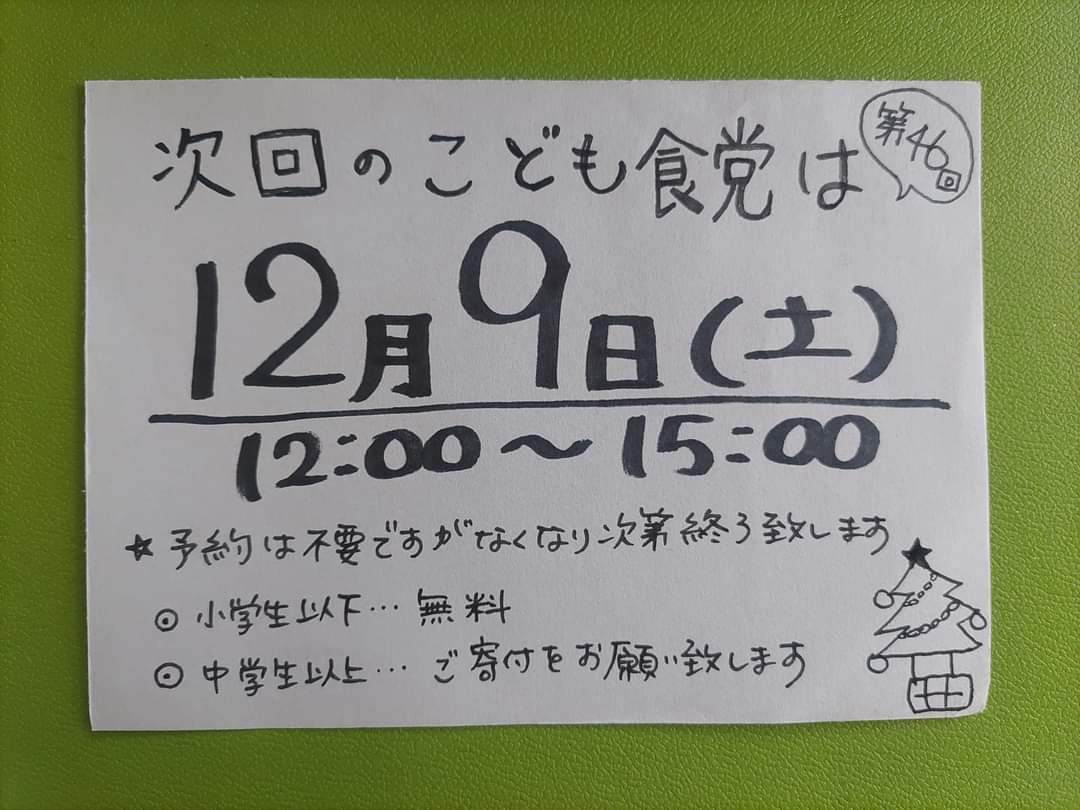 次回のこども食党は
第46回
12月9日(土)
12:00～15:00
★予約は不要ですがなくなり次第終了致します
◎小学生以下…無料
◎中学生以上…ご寄付をお願い致します